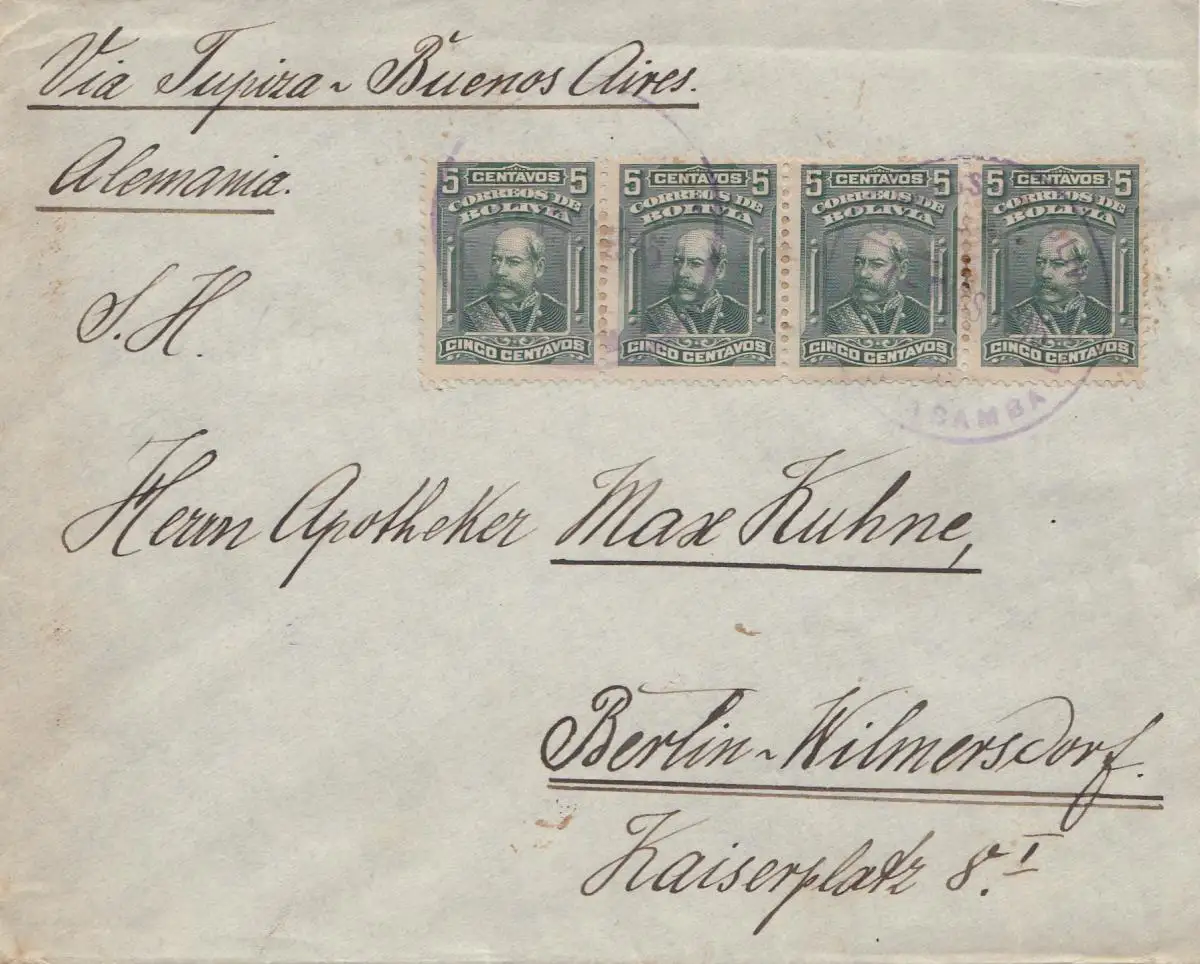 Via Tupiza ~ Buenos Aires.
Alemania.
S. H.
5 CENTAVOS 5
CORREOS DE
BOLIVIA
CINCO CENTAVOS
5 CENTAVOS 5
CORREOS DE
BOLIVIA
CINCO CENTAVOS
5 CENTAVOS 5
CORREOS DE
BOLIVIA
CINCO CENTAVOS
5 CENTAVOS 5
CORREOS DE
BOLIVIA
CINCO CENTAVOS
Herrn Apotheker Max Kuhne,
Berlin ~ Wilmersdorf.
Kaiserplatz 8. I